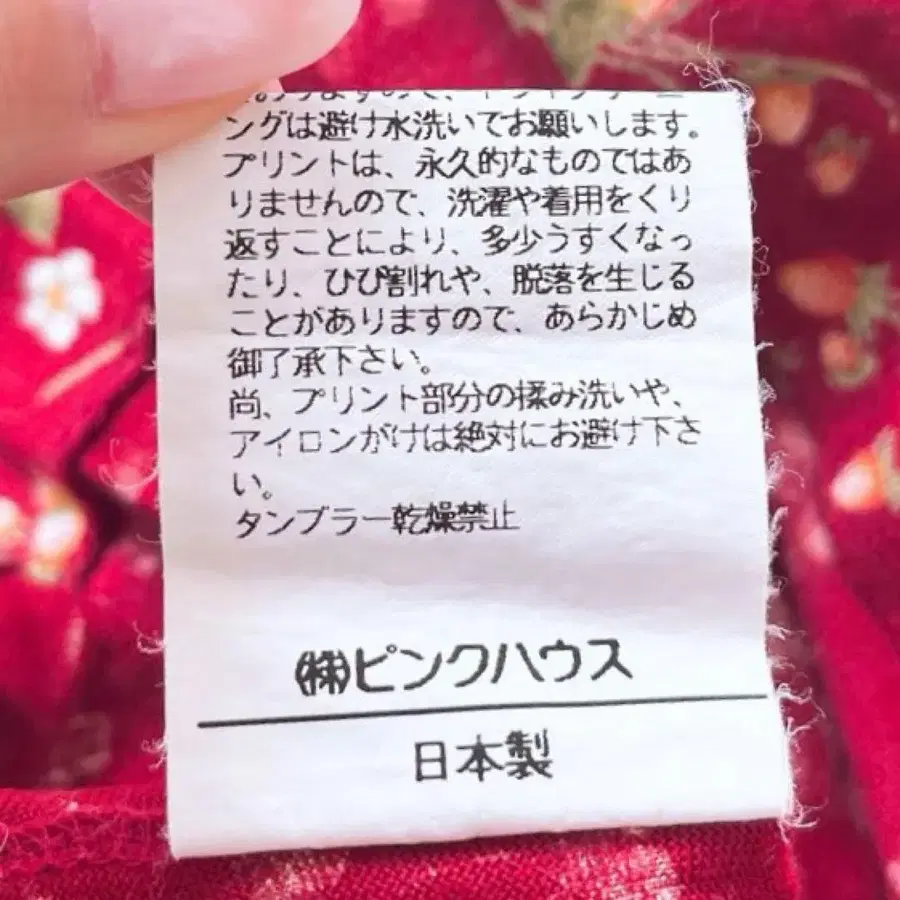 ングは避け水洗いでお願いします。
プリントは、永久的なものではあ
りませんので、洗濯や着用をくり
返すことにより、多少うすくなっ
たり、ひび割れや、脱落を生じる
ことがありますので、あらかじめ
御了承下さい。
尚、プリント部分の揉み洗いや、
アイロンがけは絶対にお避け下さ
い。
タンブラー乾燥禁止
㈱ピンクハウス
日本製